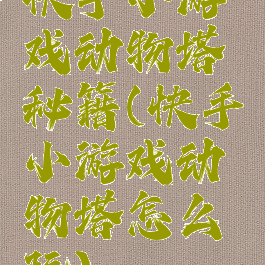 快手小游
戏动物塔
秘籍(快手
小游戏动
物塔怎么
玩)